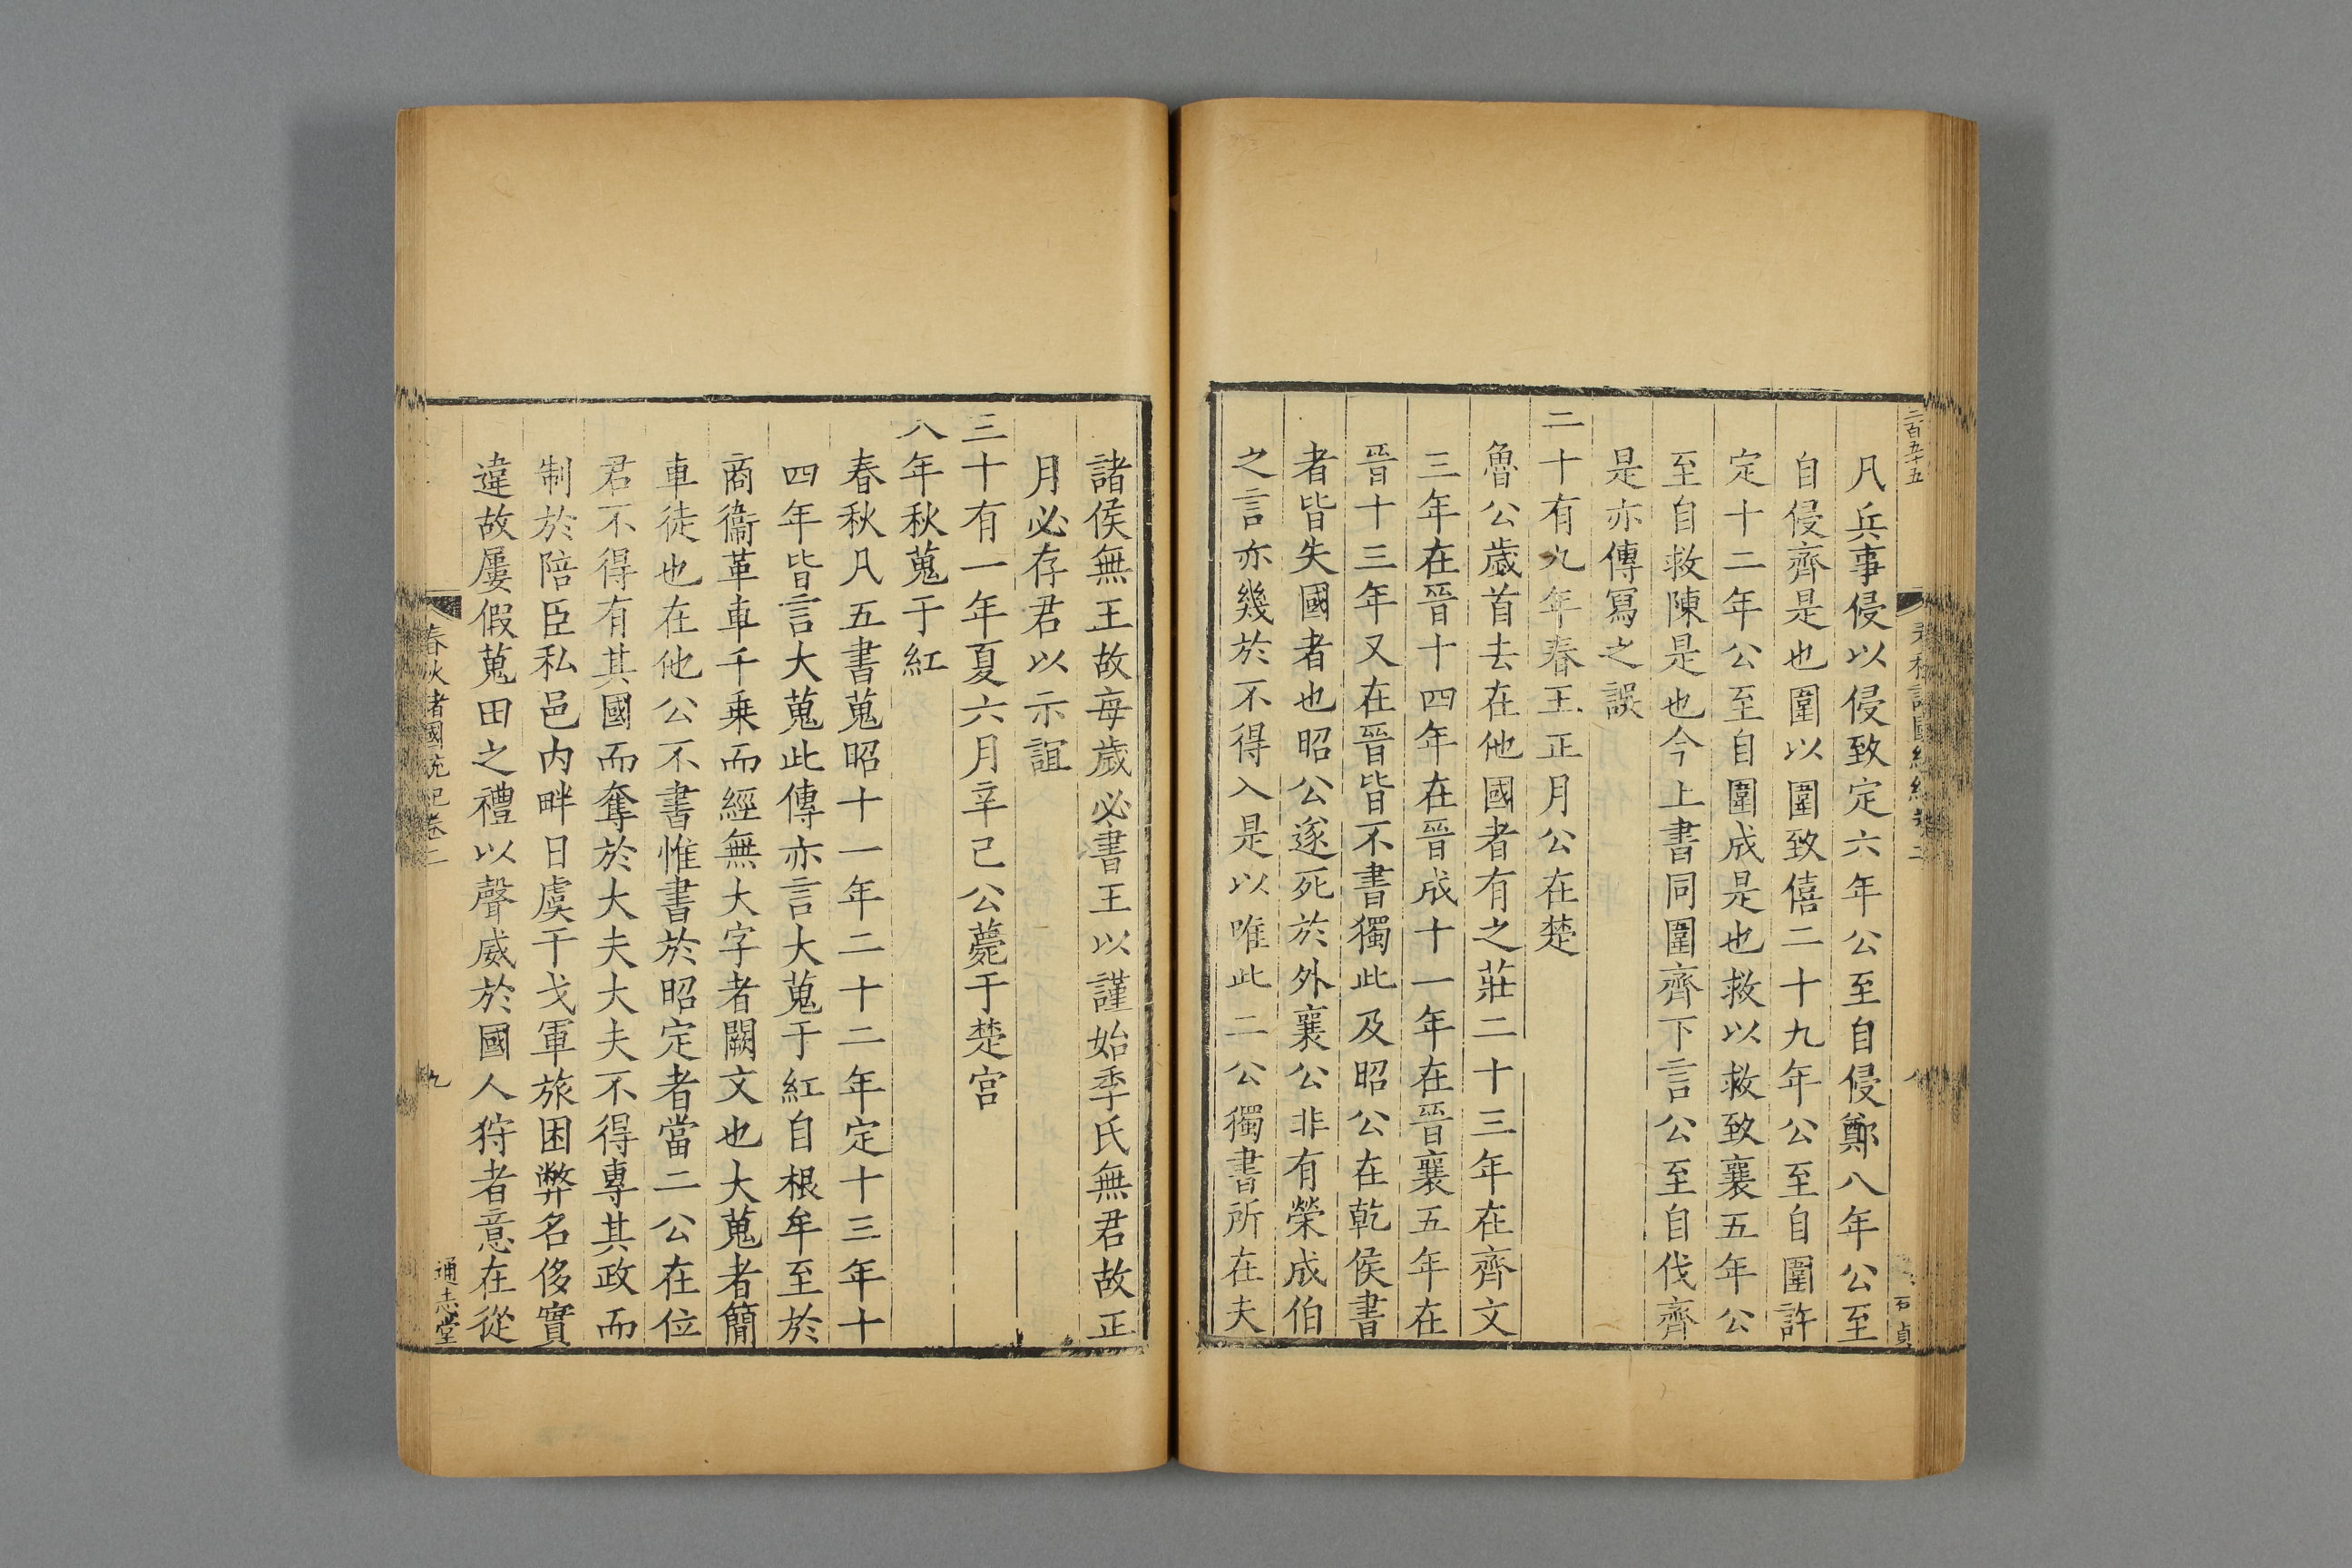 二百五十五
凡兵事侵以侵致定六年公至自侵鄭八年公至
自侵齊是也圍以圍致僖二十九年公至自圍許
定十二年公至自圍成是也救以救致襄五年公
至自救陳是也今上書同圍齊下言公至自伐齊
是亦傳寫之誤
二十有九年春王正月公在楚
魯公歲首去在他國者有之莊二十三年在齊文
三年在晉十四年在晉成十一年在晉襄五年在
晉十三年又在晉皆不書獨此及昭公在乾侯書
者皆失國者也昭公遂死於外襄公非有榮成伯
之言亦幾於不得入是以唯此二公獨書所在夫
諸侯無王故每歲必書王以謹始季氏無君故正
月必存君以示誼
三十有一年夏六月辛巳公薨于楚宮
八年秋蒐于紅
春秋凡五書蒐昭十一年二十二年定十三年十
四年皆言大蒐此傳亦言大蒐于紅自根牟至於
商衞革車千乘而經無大字者闕文也大蒐者簡
車徒也在他公不書惟書於昭定者當二公在位
君不得有其國而奪於大夫大夫不得專其政而
制於陪臣私邑內畔日虞干戈軍旅困弊名侈實
違故屢假蒐田之禮以聲威於國人狩者意在從
春秋諸國統紀卷二
九
通志堂